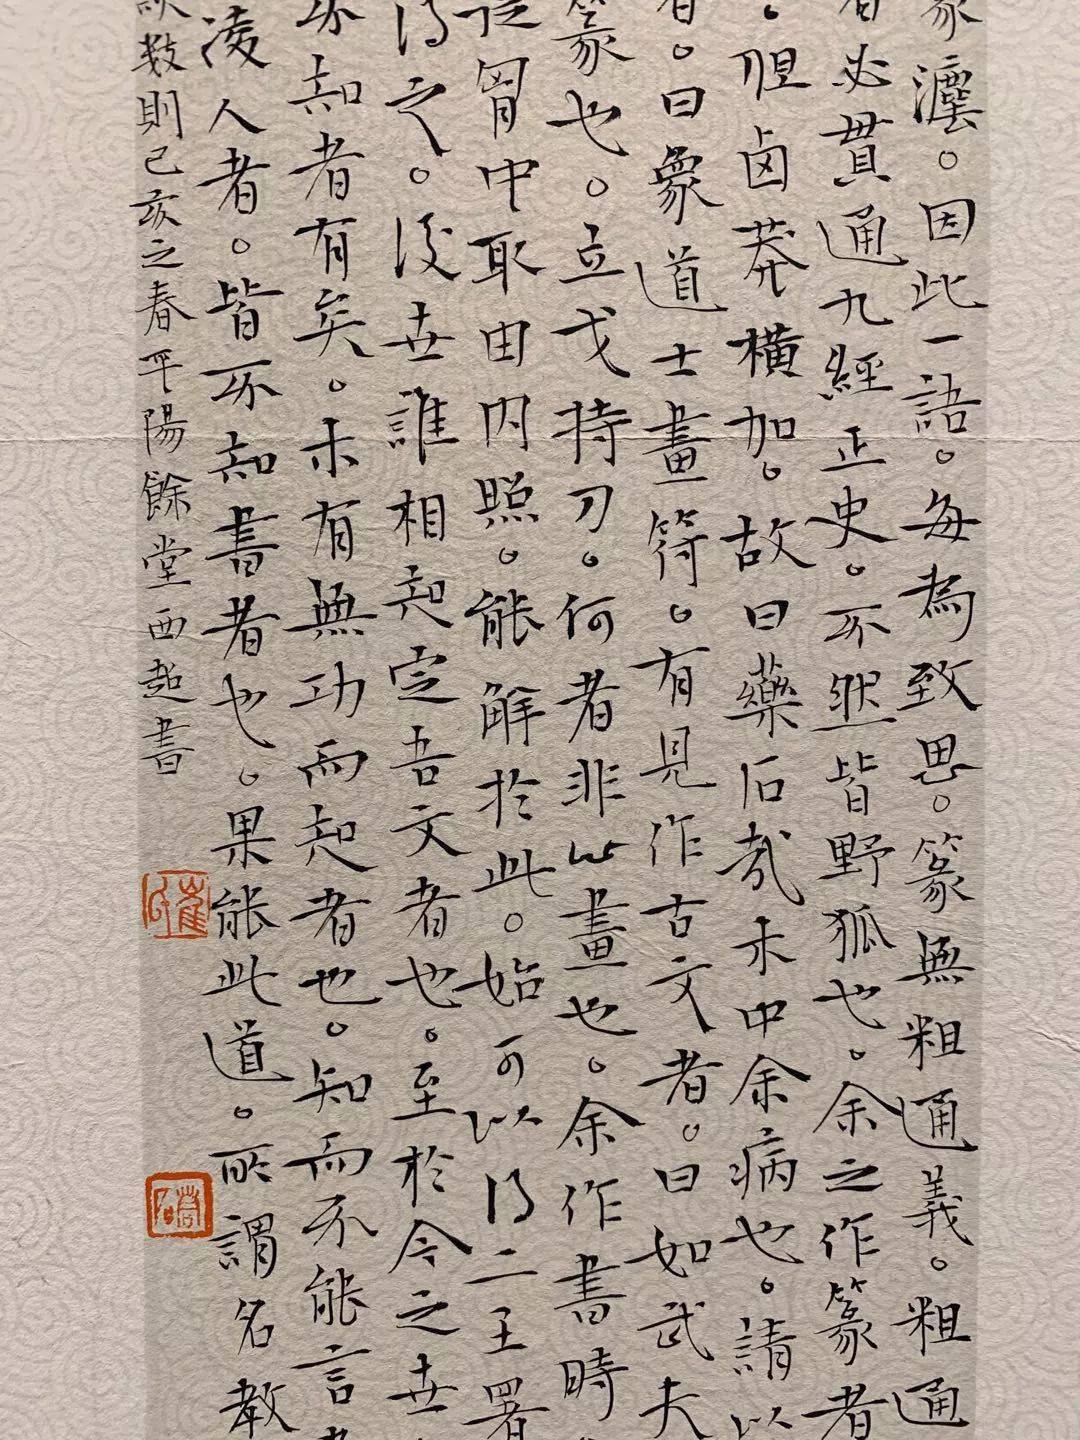 篆瀍。因此一語。每為致思。篆無粗通義。粗通
者必貫通九經正史。不然皆野狐也。余之作篆者
。但鹵莽橫加。故曰藥石哉未中余病也。請以
者。曰象道士畫符。有見作古文者。曰如武夫
篆也。立戈持刀。何者非此畫也。余作書時
從胷中取由內照。能解於此。始可以得二王署
得之。後世誰相知定吾文者也。至於今之世
不知者有矣。未有無功而知者也。知而不能言者
凌人者。皆不知書者也。果能此道。所謂名教
數則己亥之春平陽餘堂西超書
崔